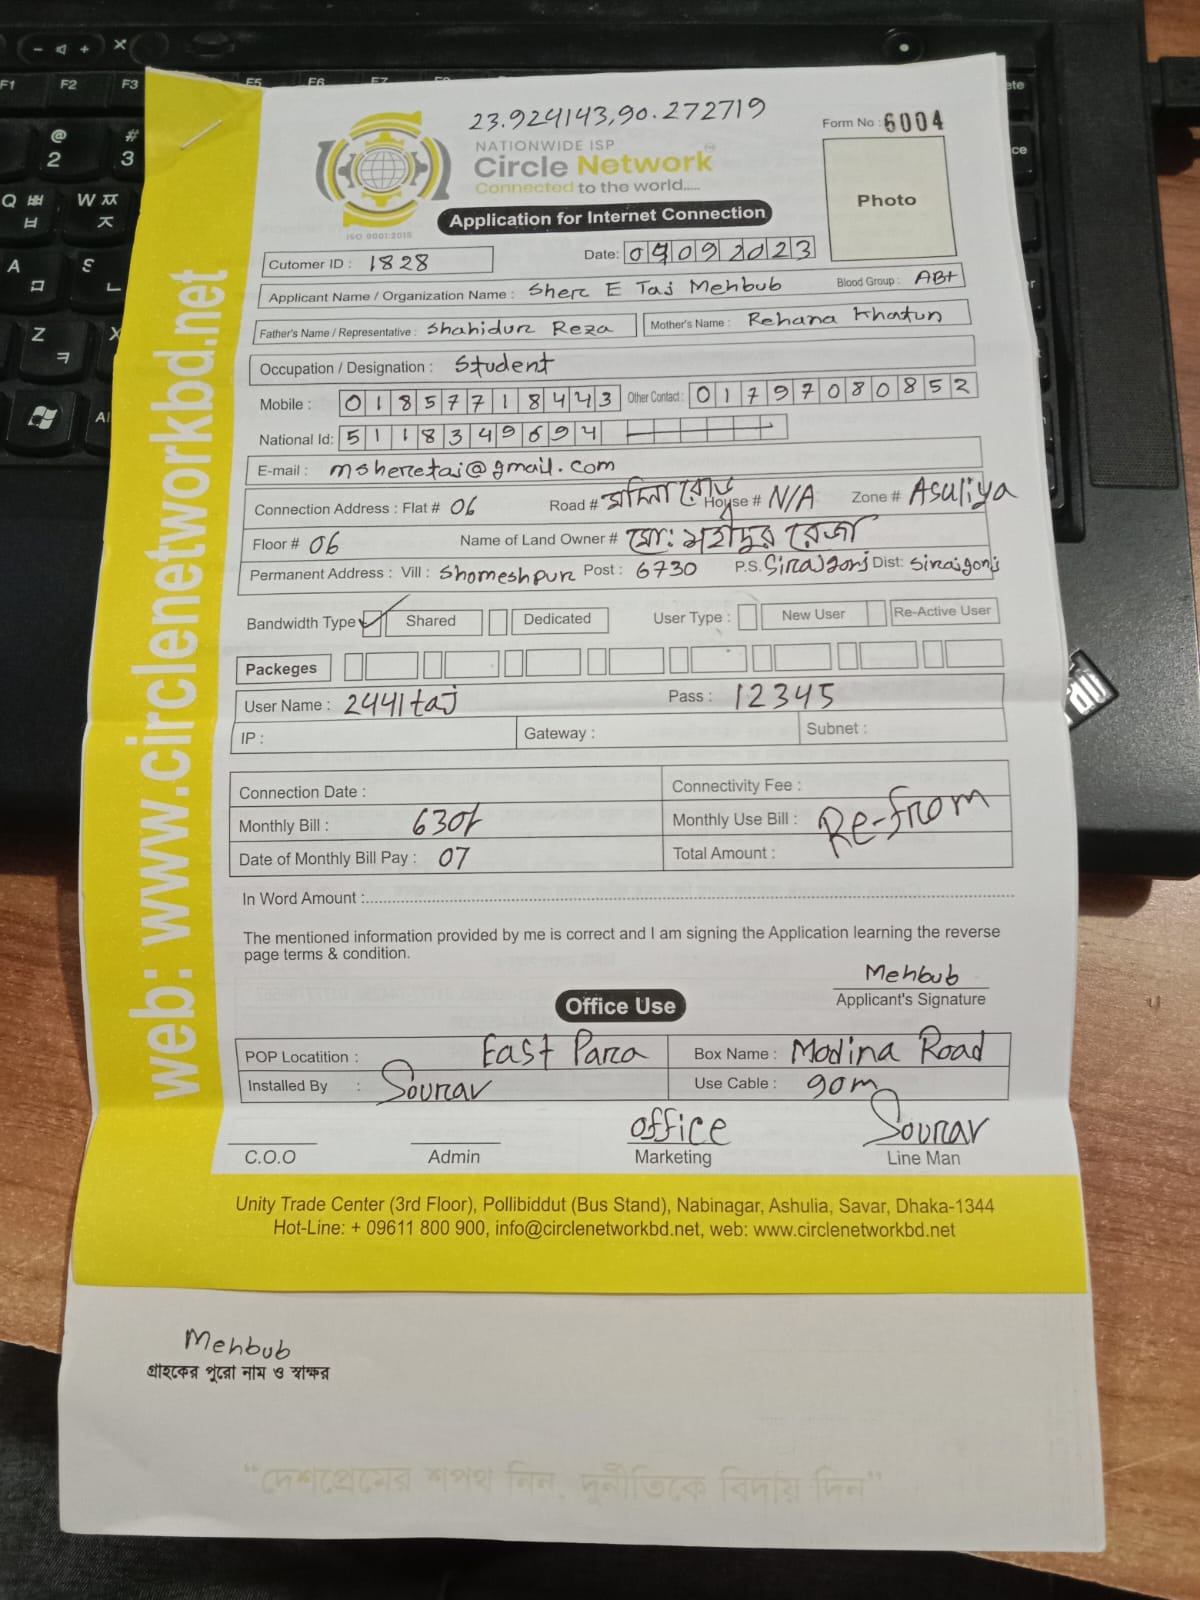 23.924143,90.272719
Form No : 6004
NATIONWIDE ISP
Circle Network
Connected to the world.....
ISO 9001:2015
Photo
Application for Internet Connection
Cutomer ID : 1828 Date: 09092023
Applicant Name / Organization Name : Shere E Taj Mehbub Blood Group : AB+
Father's Name / Representative : Shahidur Reza Mother's Name : Rehana Khatun
Occupation / Designation : Student
Mobile : 01857718443 Other Contact : 01797080852
National Id: 5118349694
E-mail : msheretaj@gmail.com
Connection Address : Flat # 06 Road # মদিনা রোড House # N/A Zone # Asuliya
Floor # 06 Name of Land Owner # মো: শহীদুর রেজা
Permanent Address : Vill : Shomeshpur Post : 6730 P.S. Sirajgonj Dist: Sirajgonj
Bandwidth Type Shared Dedicated User Type : New User Re-Active User
Packeges
User Name : 2441taj Pass : 12345
IP : Gateway : Subnet :
Connection Date : Connectivity Fee :
Monthly Bill : 630/- Monthly Use Bill : Re-from
Date of Monthly Bill Pay : 07 Total Amount :
In Word Amount :
The mentioned information provided by me is correct and I am signing the Application learning the reverse
page terms & condition.
Mehbub
Applicant's Signature
Office Use
POP Locatition : East Para Box Name : Modina Road
Installed By : Sourav Use Cable : 90m
office Sourav
C.O.O Admin Marketing Line Man
Unity Trade Center (3rd Floor), Pollibiddut (Bus Stand), Nabinagar, Ashulia, Savar, Dhaka-1344
Hot-Line: + 09611 800 900, info@circlenetworkbd.net, web: www.circlenetworkbd.net
web: www.circlenetworkbd.net
Mehbub
গ্রাহকের পুরো নাম ও স্বাক্ষর
“দেশপ্রেমের শপথ নিন, দুর্নীতিকে বিদায় দিন”